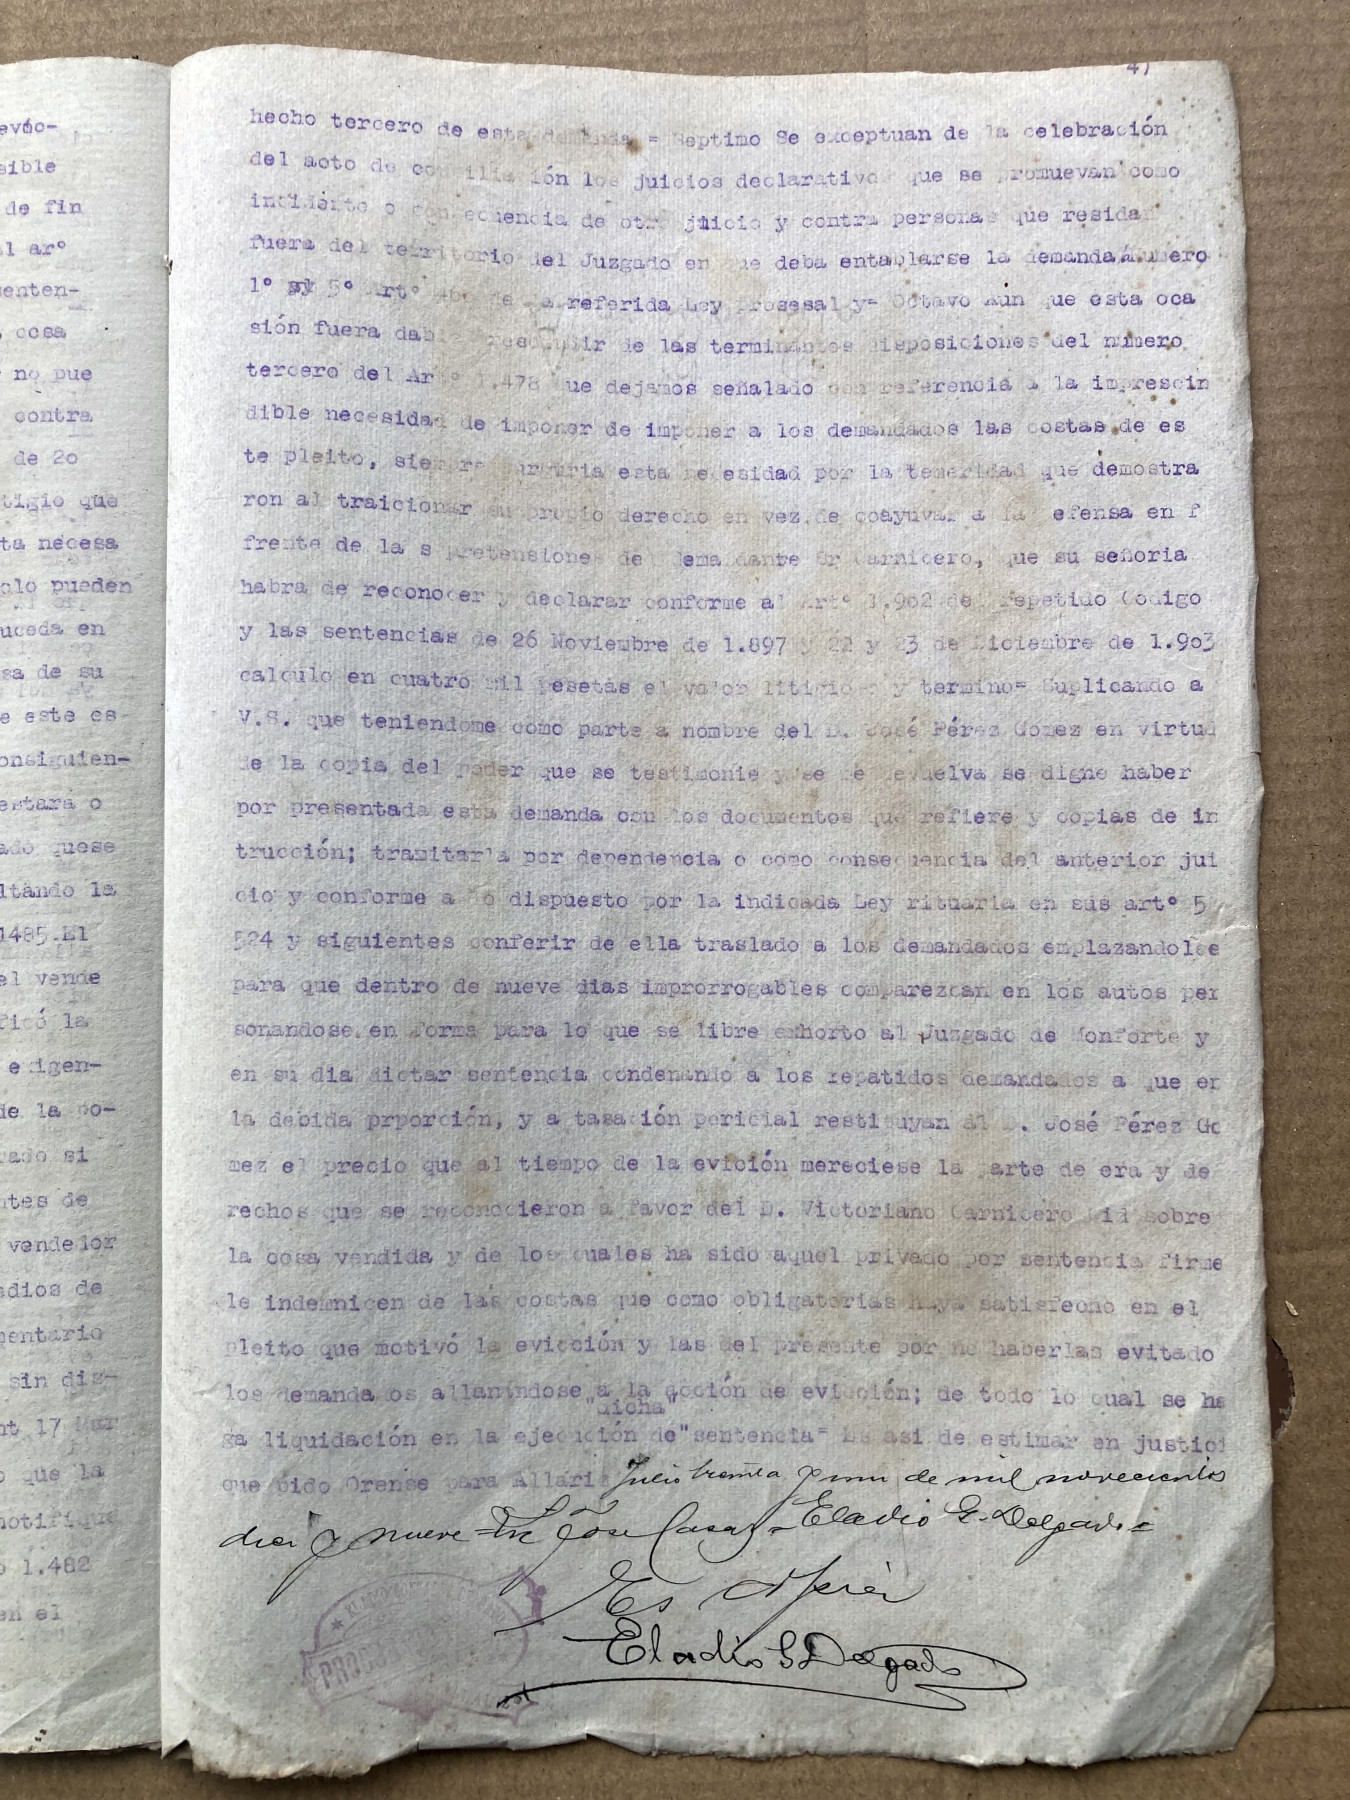 hecho tercero de esta demanda = Septimo Se exceptuan de la celebración
del acto de conciliación los juicios declarativos que se promuevan como
incidente o consecuencia de otro juicio y contra personas que residan
fuera del territorio del Juzgado en que deba entablarse la demanda número
1º y 5º Artº 460 de la referida Ley Prosesal y= Octavo Aun que esta oca
sión fuera dable prescindir de las terminantes disposiciones del número
tercero del Artº 1.478 que dejamos señalado con referencia a la imprescin
dible necesidad de imponer de imponer a los demandados las costas de es
te pleito, siempre surguria esta necesidad por la temeridad que demostra
ron al traicionar su propio derecho en vez de coayuvar a la efensa en f
frente de la s pretensiones del demandante Sr Carnicero, que su señoria
habra de reconocer y declarar conforme al Artº 1.902 del repetido Codigo
y las sentencias de 26 Noviembre de 1.897 y 22 y 23 de Diciembre de 1.903
calculo en cuatro mil pesetas el valor litigioso y termino= Suplicando a
V.S. que teniendome como parte a nombre del D. José Pérez Gomez en virtud
de la copia del poder que se testimonie y se me devuelva se digne haber
por presentada esta demanda con los documentos que refiere y copias de in
trucción; tramitarla por dependencia o como consecuencia del anterior jui
cio y conforme a lo dispuesto por la indicada Ley rituaria en sus artº 5
524 y siguientes conferir de ella traslado a los demandados emplazandoles
para que dentro de nueve dias improrrogables comparezcan en los autos per
sonandose en forma para lo que se libre exhorto al Juzgado de Monforte y
en su dia dictar sentencia condenando a los repatidos demandados a que en
la debida prporción, y a tasación pericial restituyan al D. José Pérez Go
mez el precio que al tiempo de la evición mereciese la parte de era y de
rechos que se reconocieron a favor del D. Victoriano Carnicero Gil sobre
la cosa vendida y de los cuales ha sido aquel privado por sentencia firme
le indemnicen de las costas que como obligatorias haya satisfecho en el
pleito que motivó la evicción y las del presente por no haberlas evitado
los demandados allanándose a la acción de evicción; de todo lo cual se ha
"dicha"
ga liquidación en la ejecución de "sentencia= Es asi de estimar en justici
que pido Orense para Allariz Julio treinta y uno de mil novecientos
diez y nueve = José Casas = Eladio G. Delgado =
Es copia
Eladio G Delgado
evic-
sible
de fin
l arº
senten-
cosa
no pue
contra
de 2o
tigio que
ta necesa
olo pueden
uceda en
sa de su
e este es
onsiguien-
estara o
ado quese
ltándo la
1485.El
el vende
ficó la
exigen-
de la co-
rado si
ntes de
vendedor
edios de
mentario
sin dis-
nt 17 Mar
o que la
notifique
o 1.482
en el